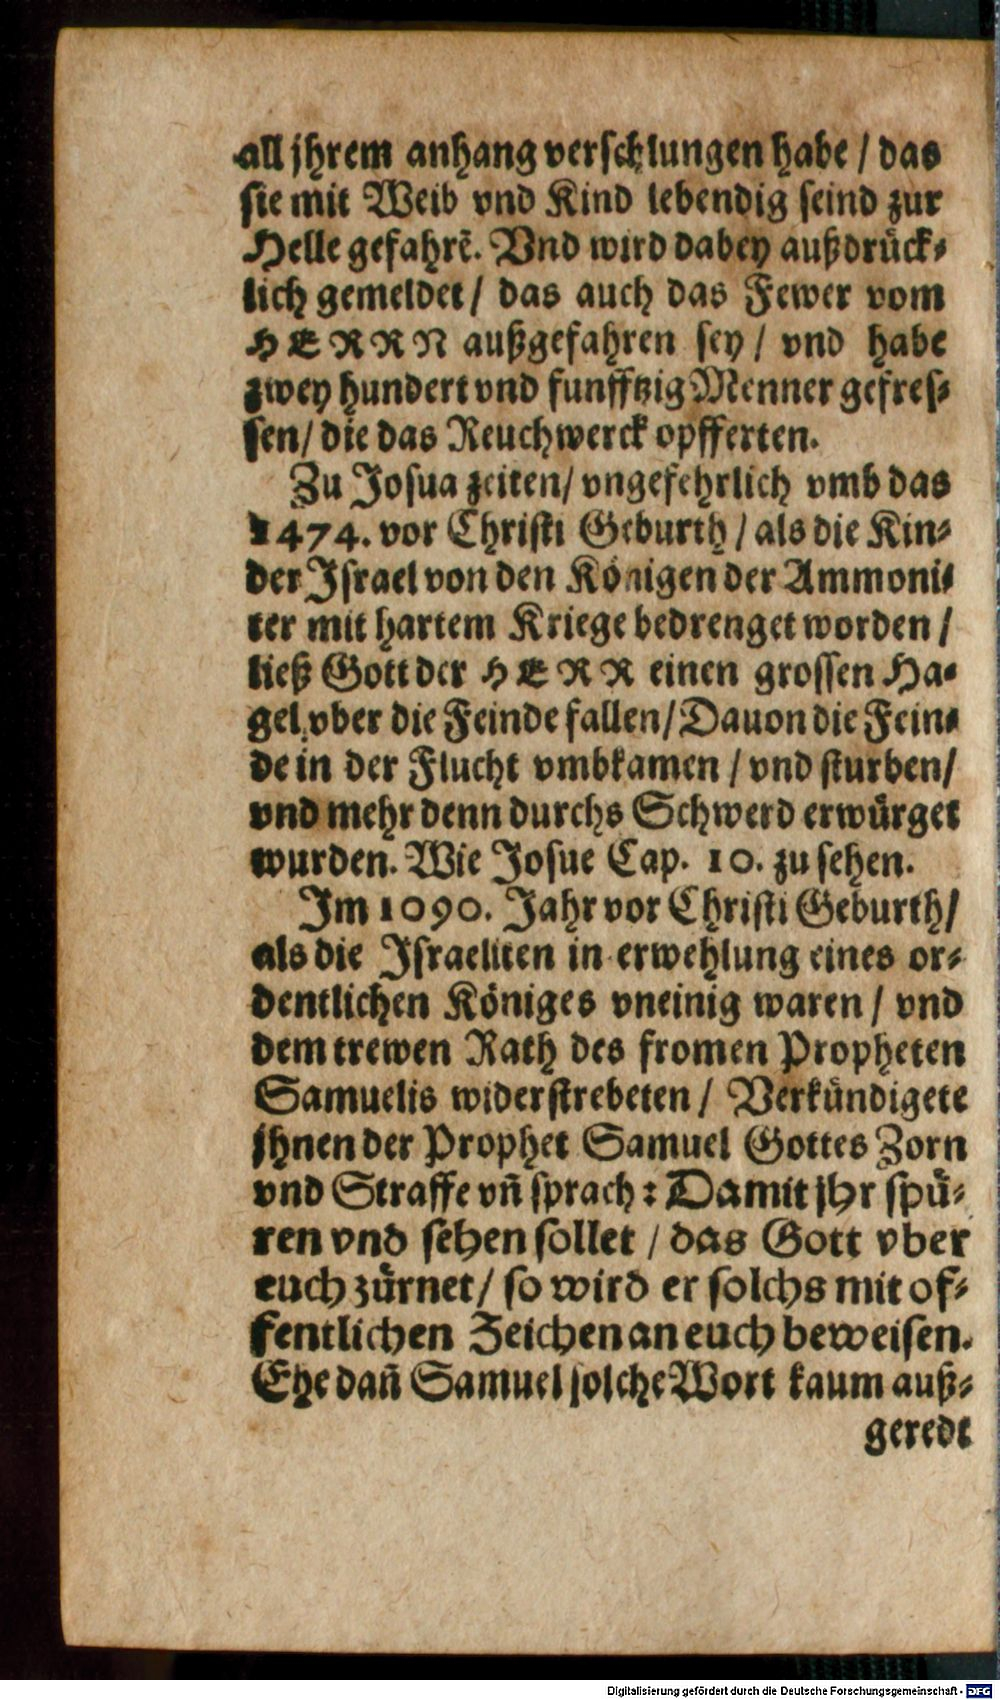 all jhrem anhang verschlungen habe / das
sie mit Weib vnd Kind lebendig seind zur
Helle gefahrẽ. Vnd wird dabey außdrück⸗
lich gemeldet / das auch das Fewer vom
HERRN außgefahren sey / vnd habe
zwey hundert vnd funfftzig Menner gefres⸗
sen / die das Reuchwerck opfferten.
Zu Josua zeiten / vngefehrlich vmb das
1474. vor Christi Geburth / als die Kin⸗
der Israel von den Königen der Ammoni⸗
ter mit hartem Kriege bedrenget worden /
ließ Gott der HERR einen grossen Ha⸗
gel vber die Feinde fallen / Dauon die Fein⸗
de in der Flucht vmbkamen / vnd sturben /
vnd mehr denn durchs Schwerd erwürget
wurden. Wie Josue Cap. 10. zu sehen.
Im 1090. Jahr vor Christi Geburth /
als die Israeliten in erwehlung eines or⸗
dentlichen Königes vneinig waren / vnd
dem trewen Rath des fromen Propheten
Samuelis widerstrebeten / Verkündigete
jhnen der Prophet Samuel Gottes Zorn
vnd Straffe vñ sprach: Damit jhr spü⸗
ren vnd sehen sollet / das Gott vber
euch zürnet / so wird er solchs mit of⸗
fentlichen Zeichen an euch beweisen.
Ehe dañ Samuel solche Wort kaum auß⸗
geredt
Digitalisierung gefördert durch die Deutsche Forschungsgemeinschaft - DFG